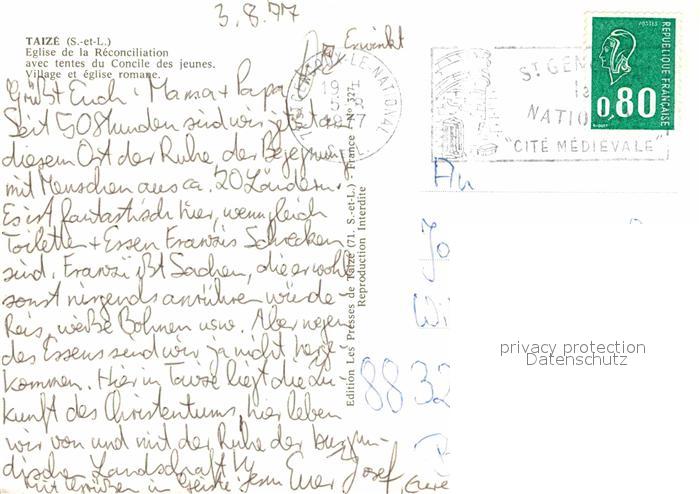 3.8.77
TAIZÉ (S.-et-L.)
Eglise de la Réconciliation
avec tentes du Concile des jeunes.
Village et église romane.
Grüßt Euch, Mama + Papa
Seit 50 Stunden sind wir jetzt an
diesem Ort der Ruhe der Begegnung
mit Menschen aus ca. 20 Ländern.
Es ist fantastisch hier, wenngleich
Toiletten + Essen Franzis Schrecken
sind. Franzi ißt Sachen, die er wohl
sonst nirgends anrühren würde -
Reis, weiße Bohnen usw. Aber wegen
des Essens sind wir ja nicht herge-
kommen. Hier in Taizé liegt die Zu-
kunft des Christentums, hier leben
wir von und mit der Ruhe der burgun-
dischen Landschaft
Mit Grüßen in Euer Josef, Eure
Edition Les Presses de Taizé (71, S.-et-L.) - France - N° 327
Reproduction Interdite
LE NATIONAL
19
5-8
1977
ST GEN
NATIO
"CITÉ MÉDIÉVALE"
POSTES
REPUBLIQUE FRANÇAISE
0,80
An
Jo
Wi
8832
privacy protection
Datenschutz